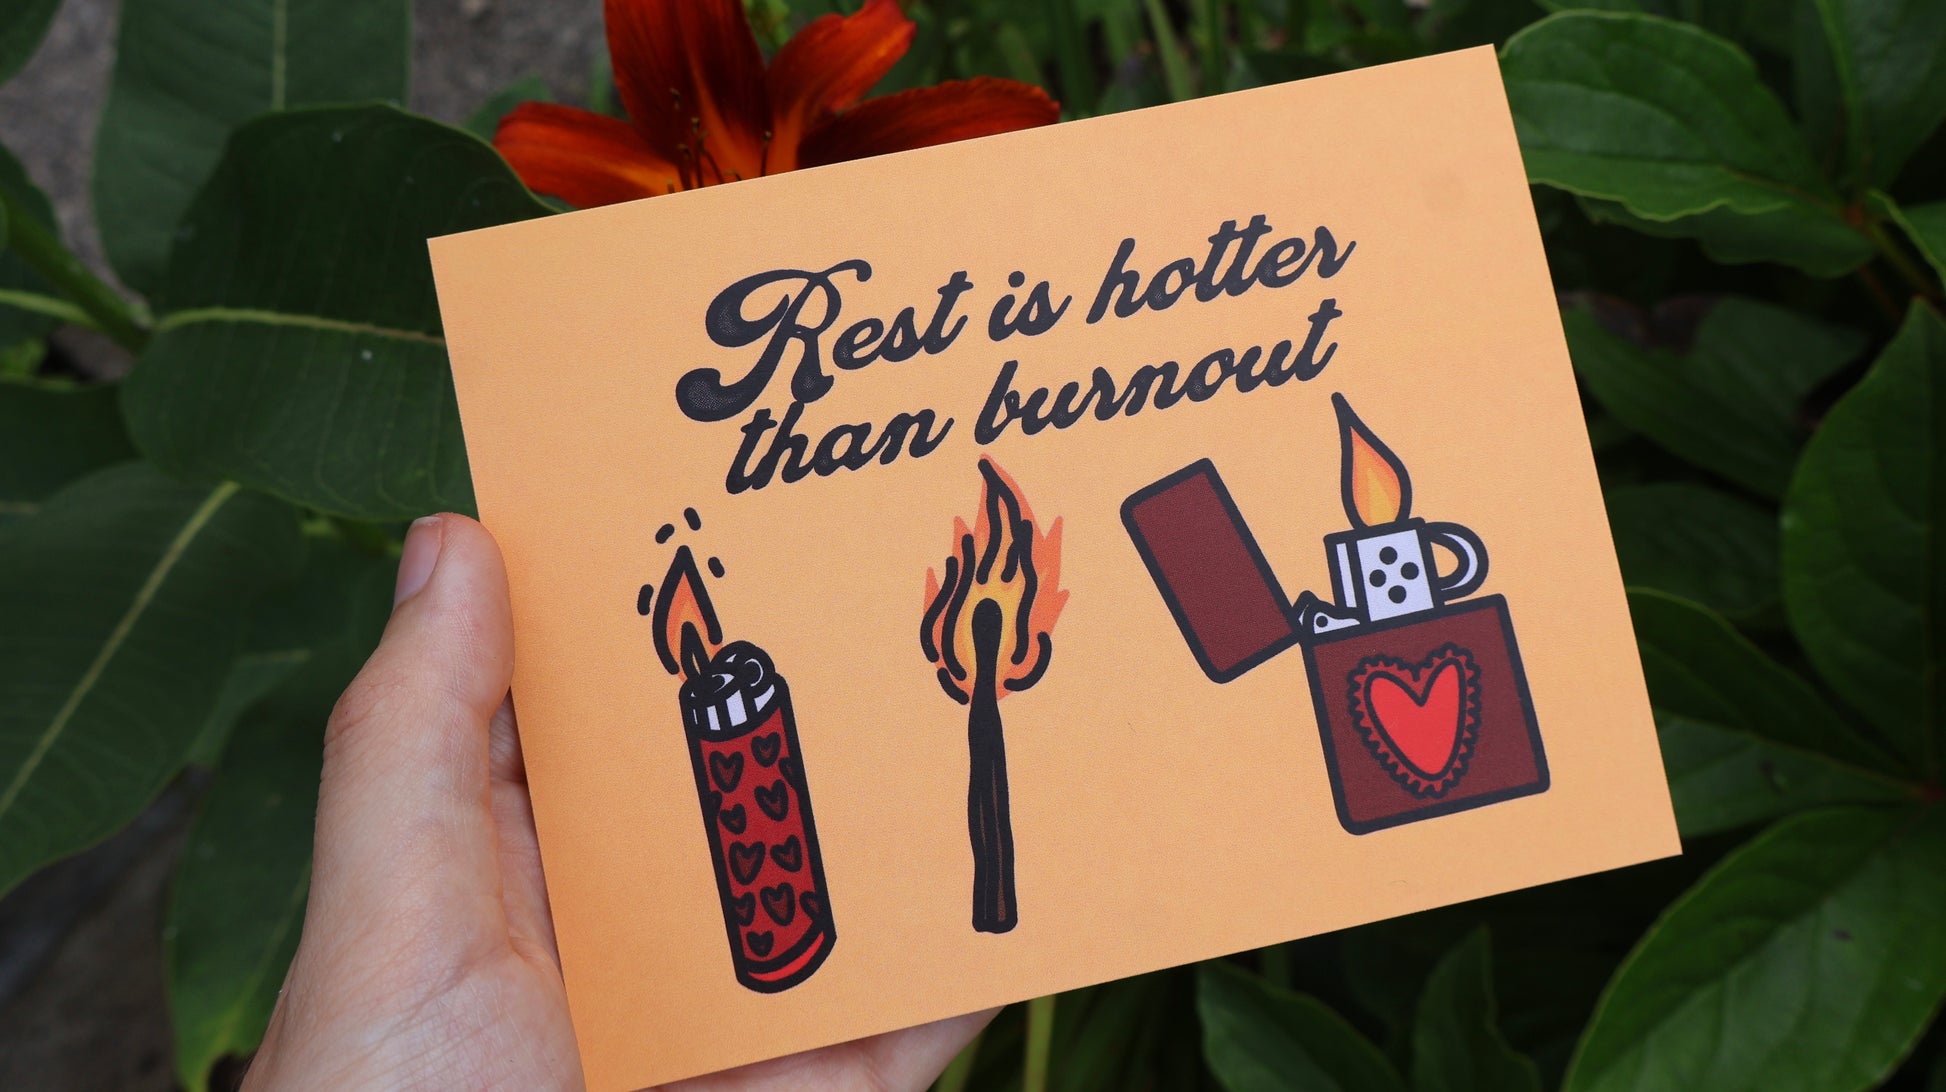 Rest is hotter
than burnout